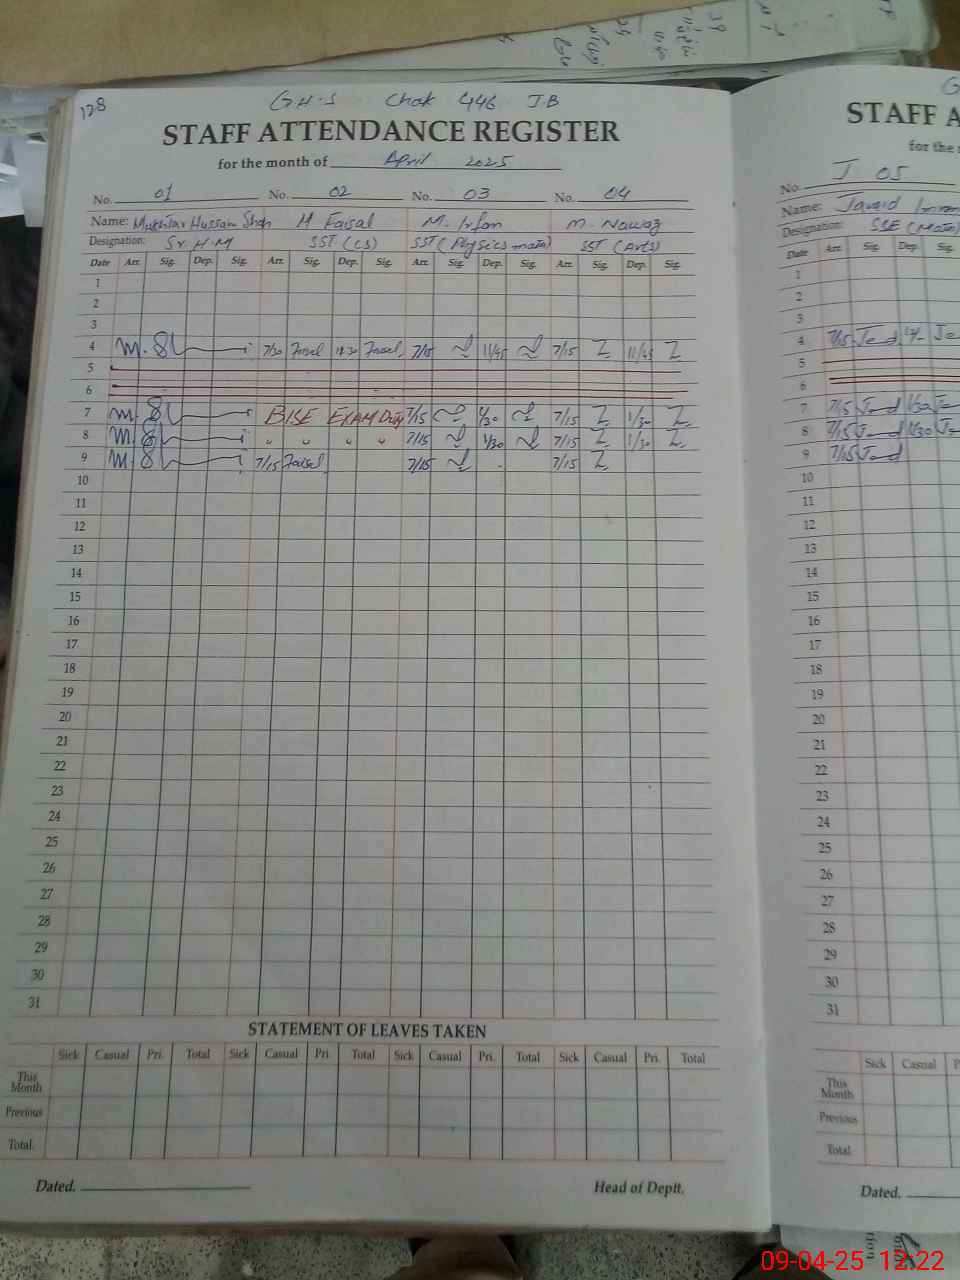 128
G.H.S Chak 446 J.B
STAFF ATTENDANCE REGISTER
for the month of April 2025
No. 01 No. 02 No. 03 No. 04
Name: Mukhtar Hussain Shah H Faisal M. Irfan M. Nawaz
Designation: Sr. H.M SST (CS) SST (Physics math) SST (Arts)
Date Arr. Sig. Dep. Sig. Arr. Sig. Dep. Sig. Arr. Sig. Dep. Sig. Arr. Sig. Dep. Sig.
1
2
3
4 7/30 Faisal Faisal 7/15 11/45 7/15 11/45
5
6
7 BISE EXAM Duty 7/15 1/30 7/15 1/30
8 " " " " 7/15 1/30 7/15 1/30
9 7/15 Faisal 7/15 7/15
10
11
12
13
14
15
16
17
18
19
20
21
22
23
24
25
26
27
28
29
30
31
STATEMENT OF LEAVES TAKEN
Sick Casual Pri. Total Sick Casual Pri. Total Sick Casual Pri. Total Sick Casual Pri. Total
This Month
Previous
Total.
Dated. Head of Deptt.
STAFF A
for the
No. J 05
Name: Javaid
Designation: SSE (Math)
Date Arr. Sig. Dep. Sig.
1
2
3
4 7/15
5
6
7 7/15 1/30
8 7/15 1/30
9 7/15
10
11
12
13
14
15
16
17
18
19
20
21
22
23
24
25
26
27
28
29
30
31
Sick Casual P
This Month
Previous
Total
Dated.
09-04-25 12:22